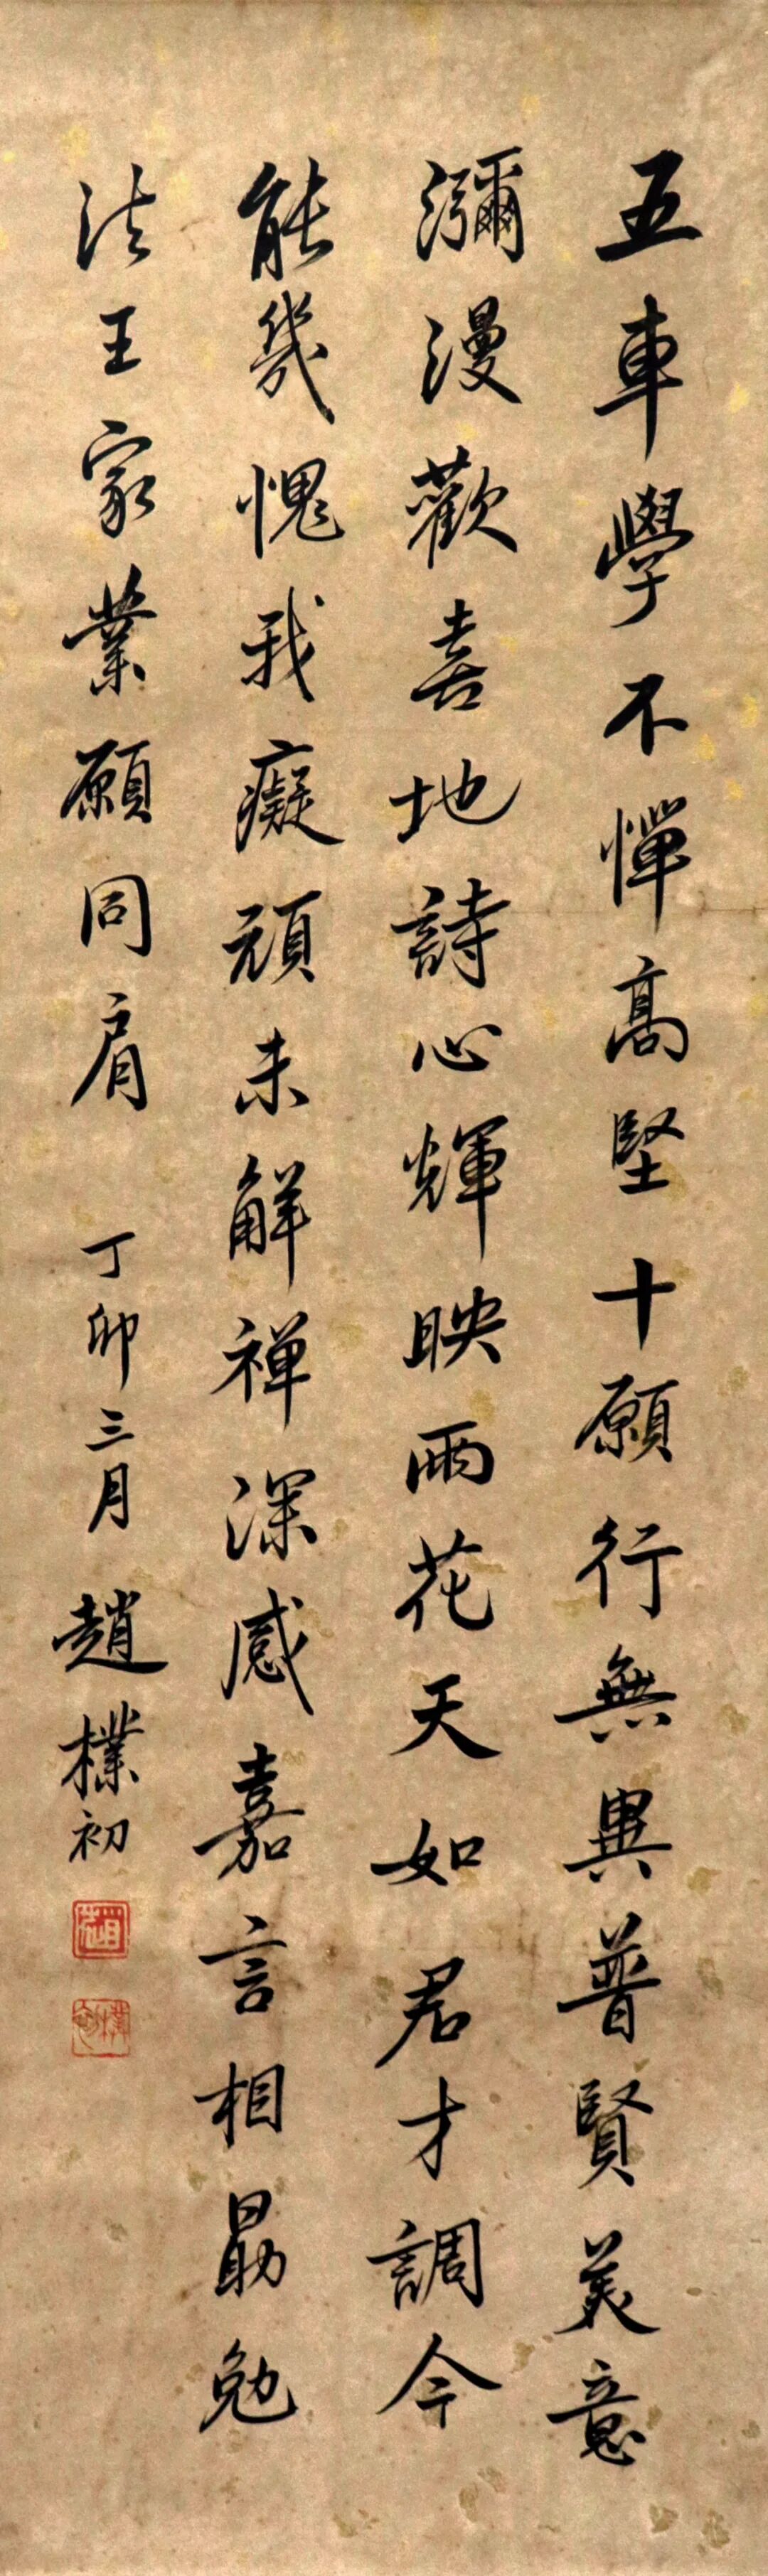 五車學不憚高堅十願行無異普賢美意
瀰漫歡喜地詩心輝映雨花天如君才調今
能幾愧我癡頑未解禪深感嘉言相勗勉
法王家業願同肩 丁卯三月 趙樸初